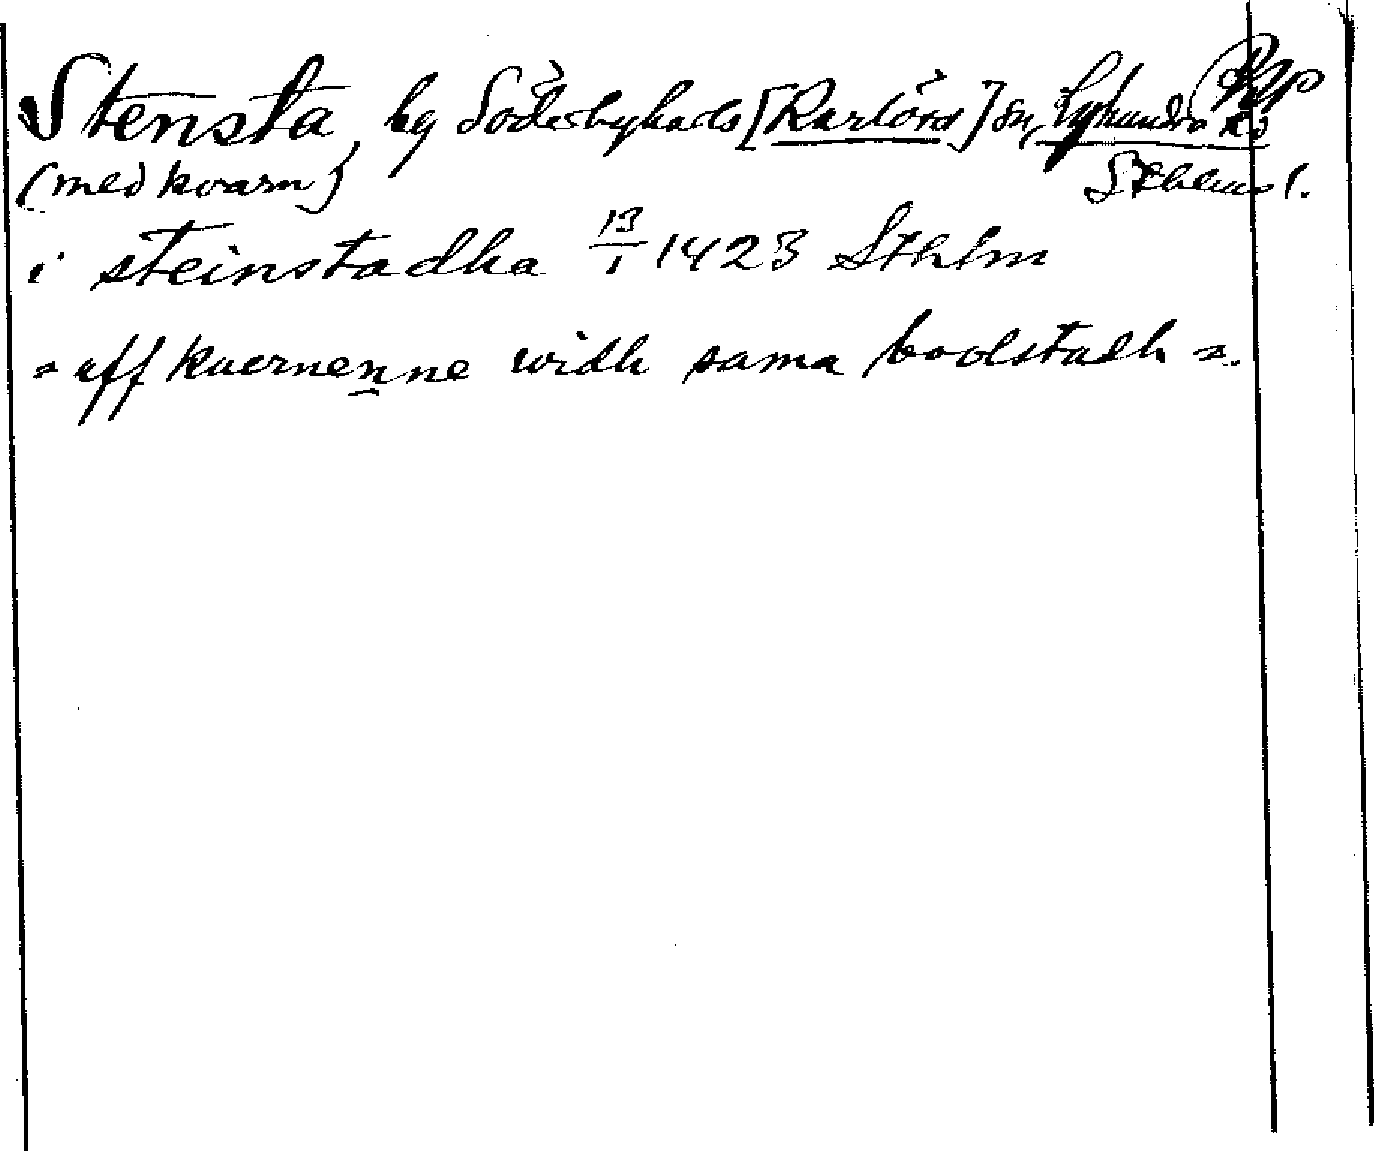 Stensta, by Söderbykarls [Rarlörd] sn, Lyhundra hd
(med kvarn)
Sthlms l.
i steinstadha 13/1 1423 Sthlm
" aff kuernenne widh sama boolstadh ".